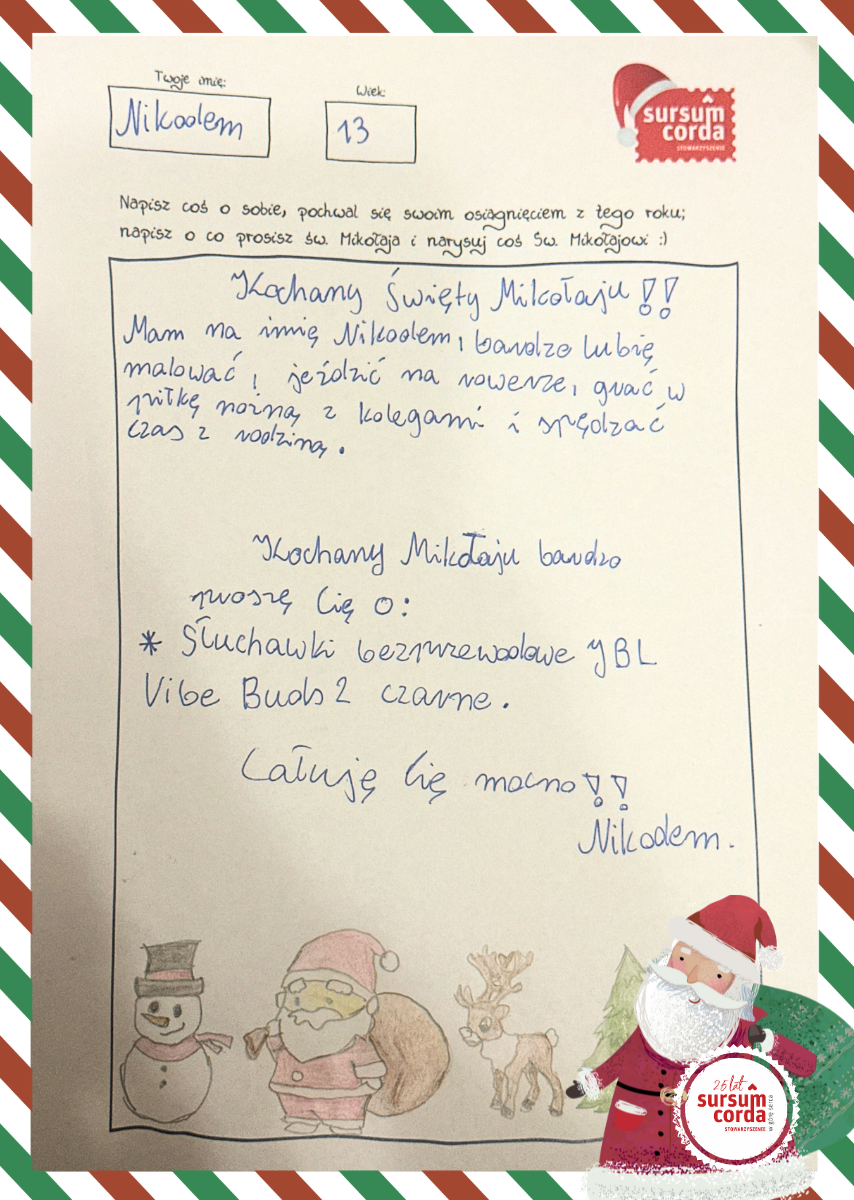 Twoje imię:
Nikodem
Wiek:
13
sursum
corda
STOWARZYSZENIE
Napisz coś o sobie, pochwal się swoim osiągnięciem z tego roku;
napisz o co prosisz św. Mikołaja i narysuj coś Św. Mikołajowi :)
Kochany Święty Mikołaju!!
Mam na imię Nikodem, bardzo lubię
malować, jeździć na rowerze, grać w
piłkę nożną z kolegami i spędzać
czas z rodziną.
Kochany Mikołaju bardzo
proszę Cię o:
* Słuchawki bezprzewodowe JBL
Vibe Buds 2 czarne.
Całuję Cię mocno!!
Nikodem.
25 lat
sursum
corda
STOWARZYSZENIE
w górę serca